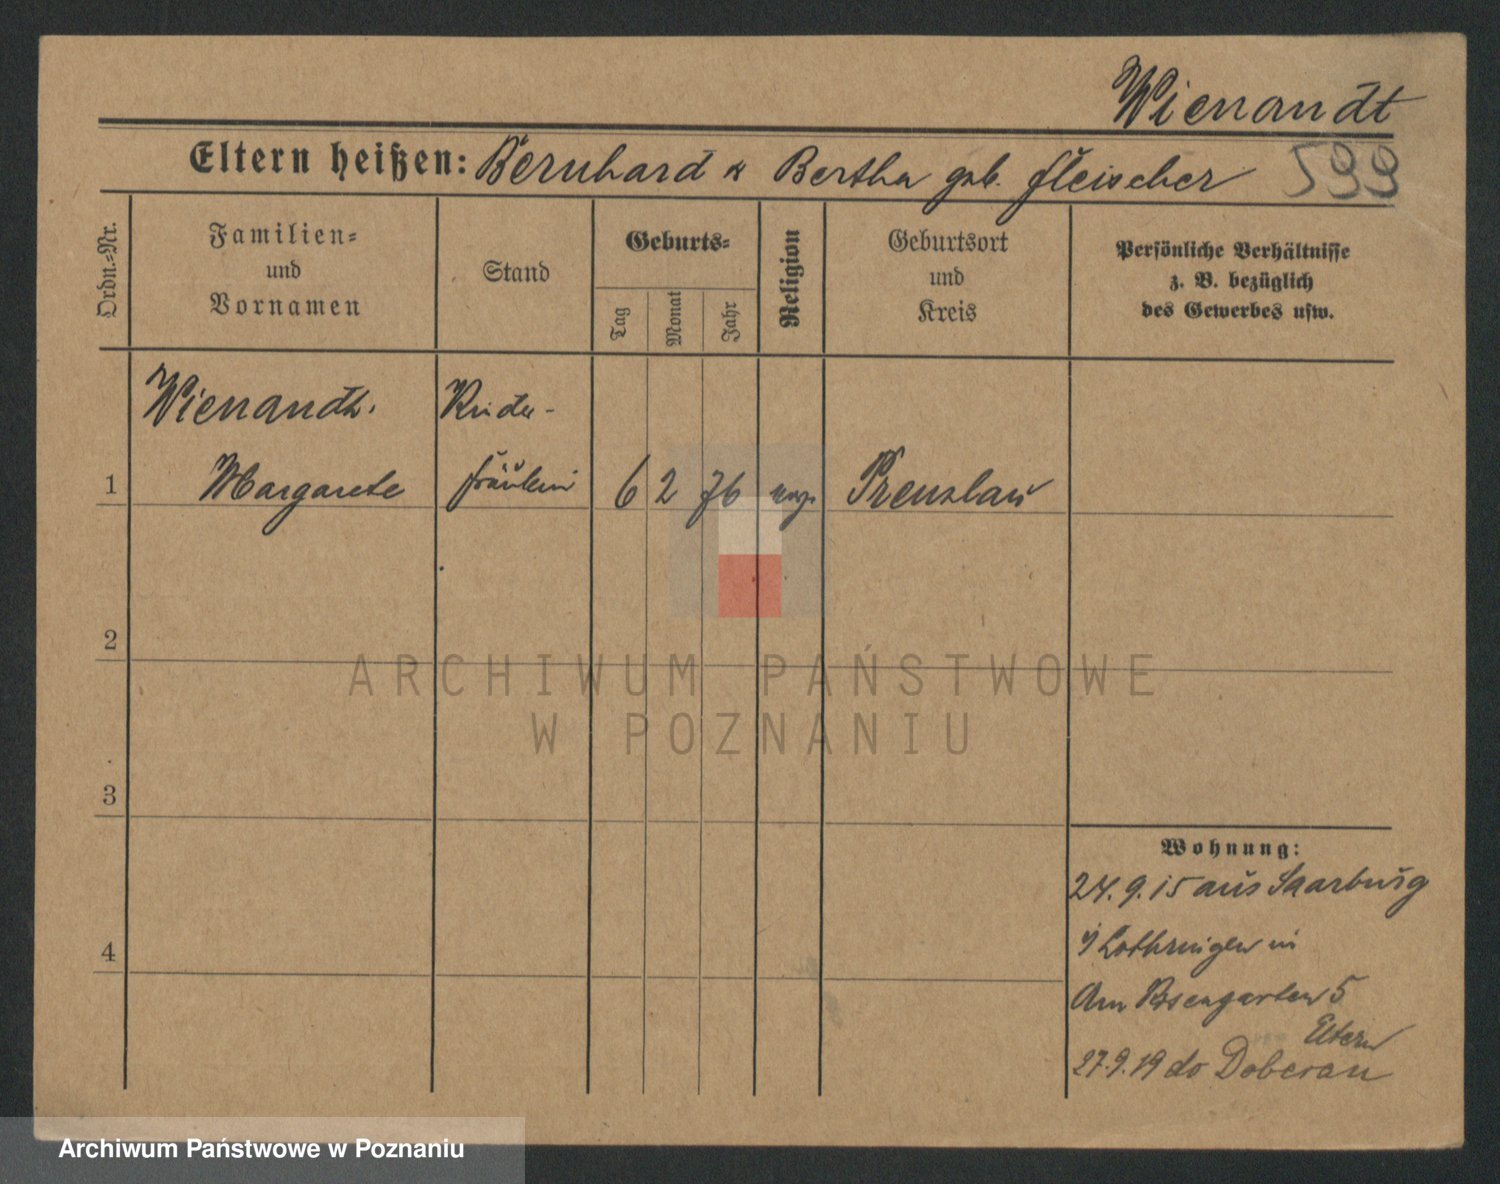 Wienandt
Eltern heißen: Bernhard & Bertha geb. Fleischer 599
Ordn.-Nr.
Familien-
und
Vornamen
Stand
Geburts-
Tag
Monat
Jahr
Religion
Geburtsort
und
Kreis
Persönliche Verhältnisse
z. B. bezüglich
des Gewerbes usw.
Wienandt. Kinder-
1 Margarete fräulein 6 2 76 evgl. Prenzlau
2
3
4
Wohnung:
24.9.15 aus Saarburg
i/ Lothringen in
Am Rosengarten 5
Eltern
27.9.19 do Doberan
ARCHIWUM PAŃSTWOWE
W POZNANIU
Archiwum Państwowe w Poznaniu